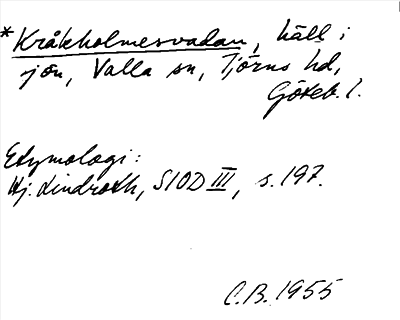 *Kråkholmesvadan, häll i
sjön, Valla sn, Tjörns hd,
Göteb. l.
Etymologi:
Hj. Lindroth, SIOD III, s. 197.
C.B. 1955